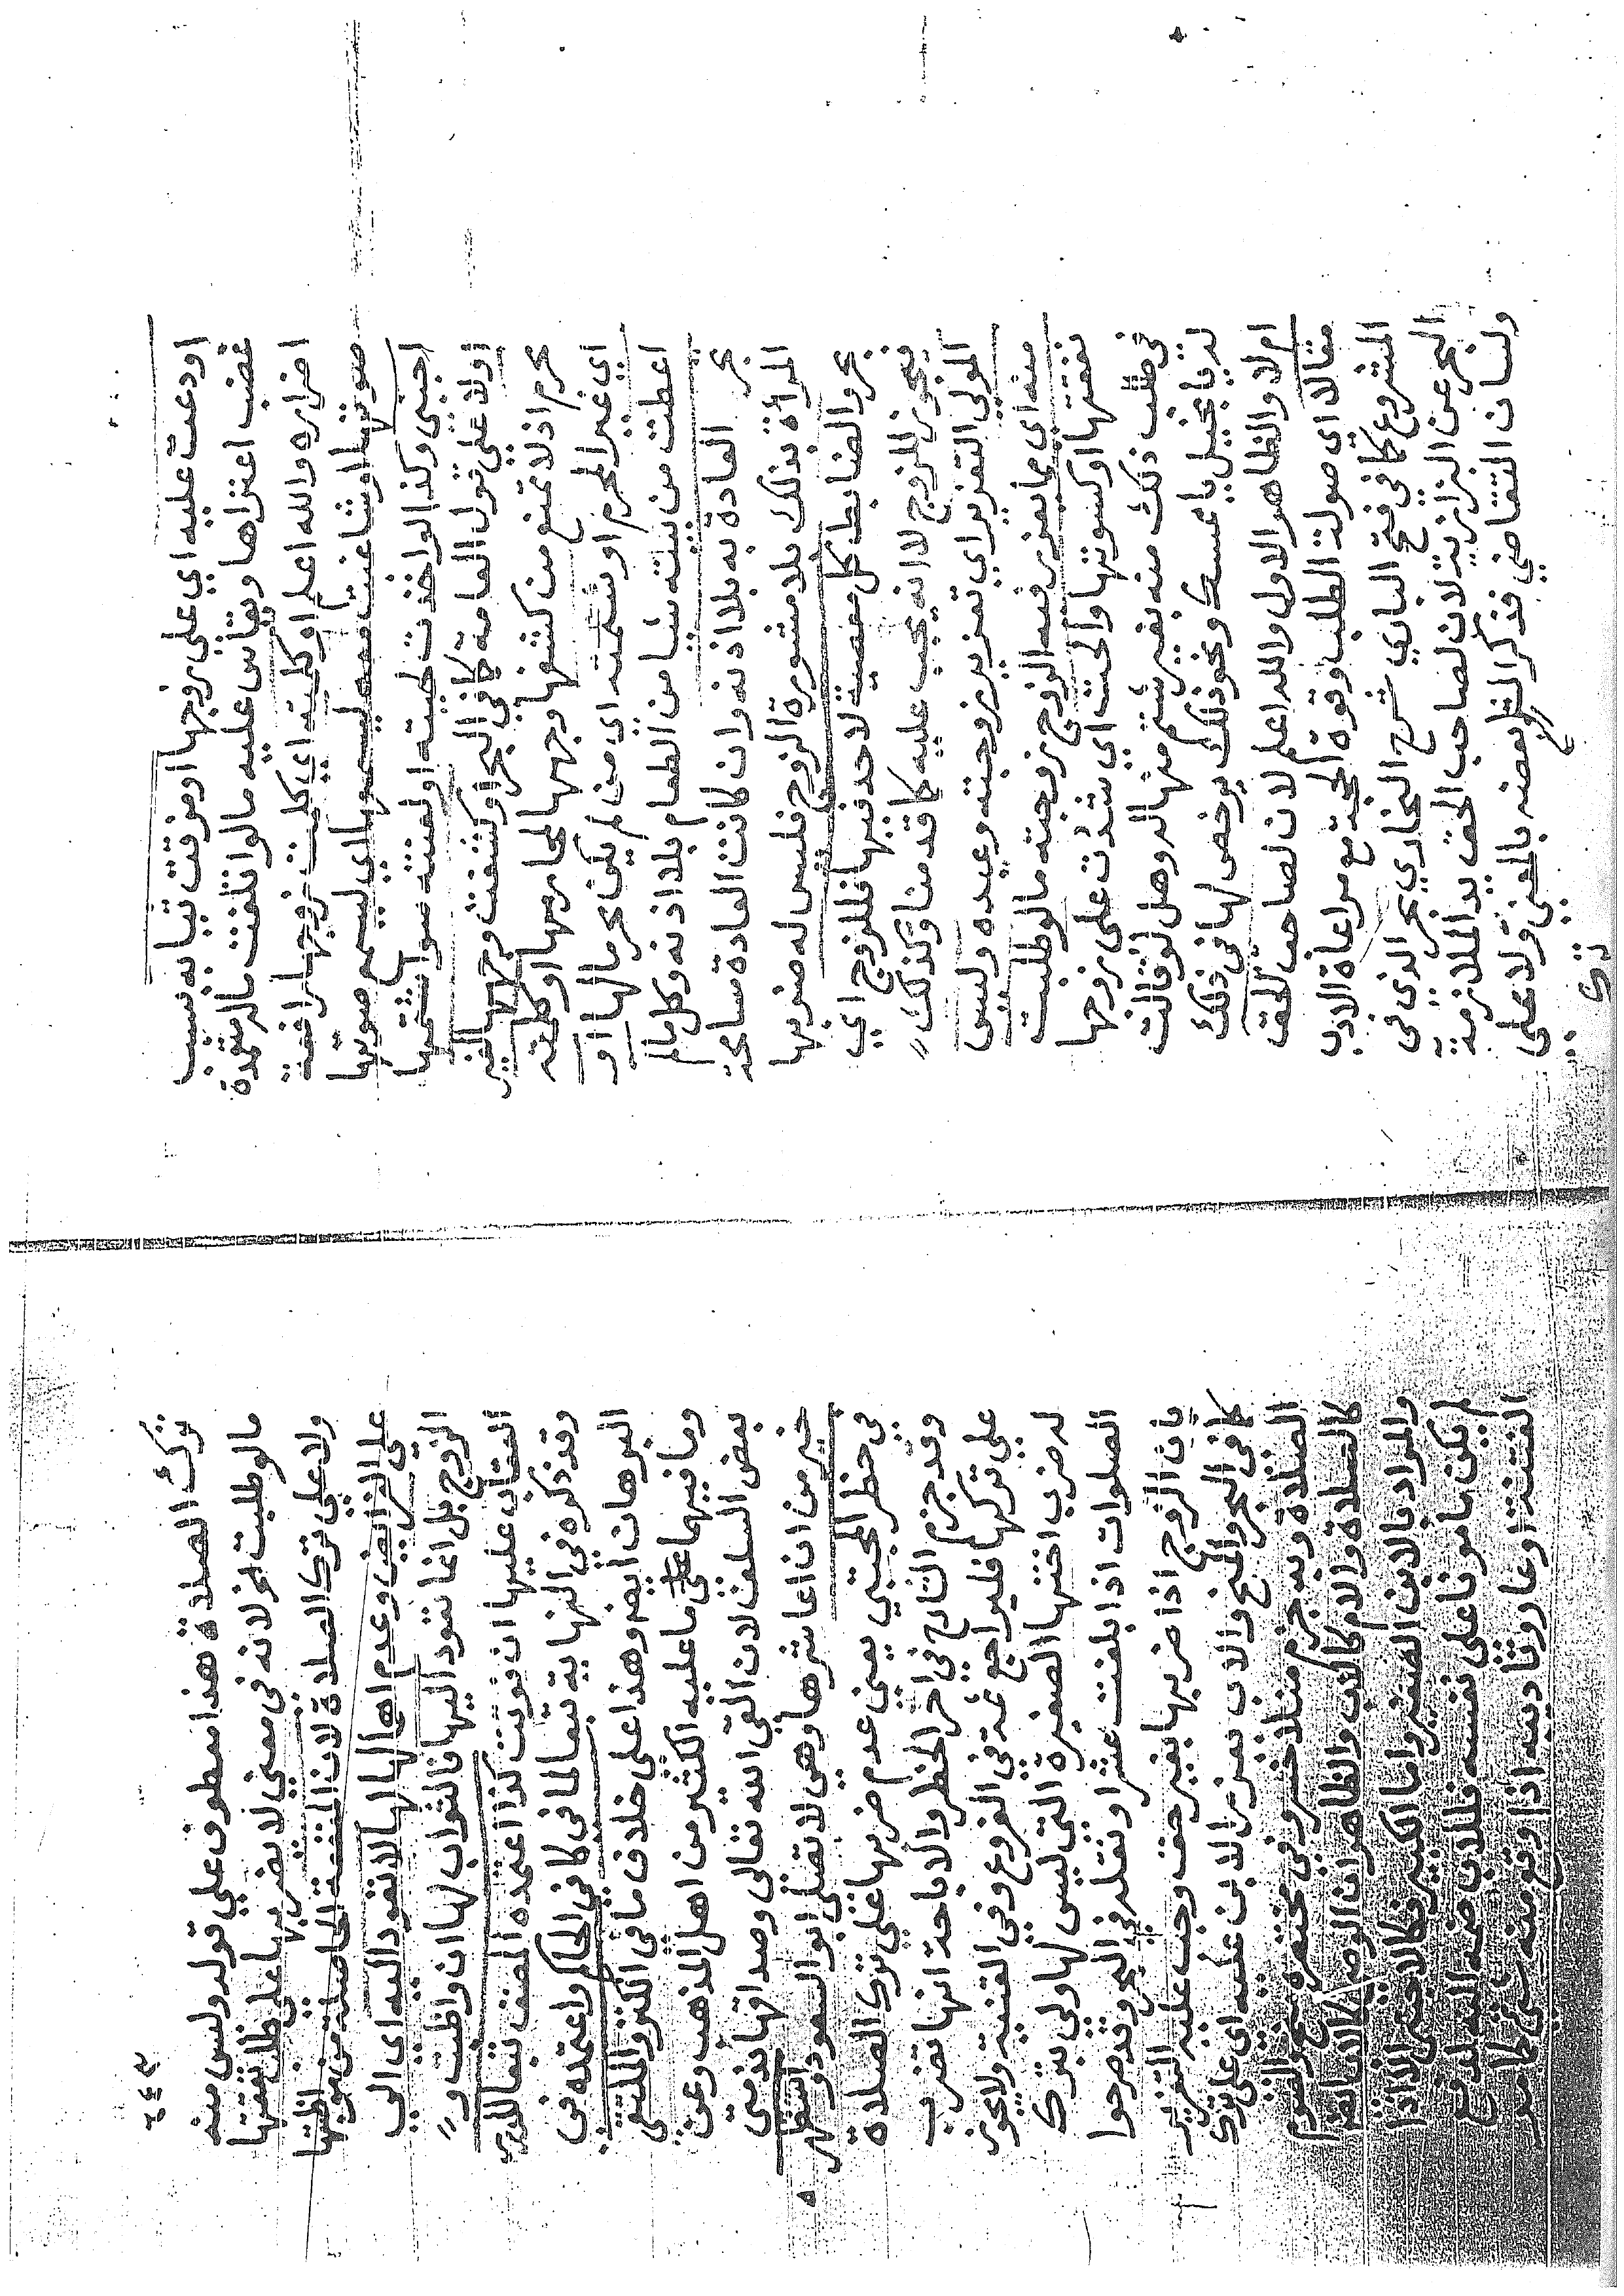 اودعت عليه اي علي زوجها او مزقت ثيابه بسبب
غضب اعتراها ويقاس عليه مالو اتلفت ماله متعمدة
اضراره والله اعلم او كلمته اي كلمت زوجها رافعة
صوتها او شاغبت معه ليسمع صوتها اي ليسمع صوتها
اجنبي وكذا لو اخذت لحيته او لعنته سوا شتمها
اولا علي قول العامة كما في البحر او كشفت وجهها لغير
محرم اذ لا تمنع من كشفها وجهها لمحارمها او كلمته
اي غير المحرم او شتمت اي من لم يكن محرما لها او
اعطت من بيته شيا من الطعام بلا اذنه وكل ما لم
تجر العادة به بلا اذنه وان كانت العادة مسامحة
المراة بذلك بلا مشورة الزوج فليس له ضربها
بحر والضابط كل معصية لا حد فيها فللزوج اي
فيجوز للزوج لا انه يجب عليه كما قدمنا وكذلك
المولي التعزير اي تعزير زوجته وعبده وليس
منه اي مما يعزر فيه الزوج زوجته مالو طلبت
نفقتها او كسوتها والحت اي شددت علي زوجها
في طلب ذلك منه بغير شتم منها له وهل لو قالت
له يا بخيل يا ممسك ونحو ذلك يرخص لها في ذلك
ام لا والظاهر الاول والله اعلم لان لصاحب الحق
مقالا اي صولة الطلب وقوة الحجة مع مراعاة الادب
المشروع كما في فتح الباري شرح البخاري بحر الذي في
البحر عن البزازية لان لصاحب الحق يد الملازمة
ولسان التقاضي فذكر الشارح بعضه بالمعني ولا علي
ترك
٢٤٢
ترك الصلاة هذا معطوف علي قوله وليس منه
مالو طلبت الخ لانه في معني لا يضربها علي طلب نفقتها
ولا علي ترك الصلاة لان المنفعة الحاصلة من مواظبتها
علي الفرايض وعدم اهمالها لها لا تعود اليه اي الي
الزوج بل انما تعود اليها فالثواب لها ان واظبت و
العقاب عليها ان فوتت كذا اعتمده المصنف تبعا للدرر
وقد ذكره في النهاية تبعا لما في كافي الحاكم واعتمده في
البرهان ايضا وهذا علي خلاف ما في الكنز والملتقي
وما فيهما علي ما عليه الكثير من اهل المذهب وعن
بعض السلف لان القي الله تعالي وصداقها بذمتي
خير من ان اعاشرها وهي لا تصلي ابو السعود واستظهر
في حظر المجتبي يعني عدم ضربها علي ترك الصلاة
وقد جزم الشارح في اخر الحظر والاباحة انها تضرب
علي تركها فليراجع ثمة في الفروع وفي القنية ولا يجوز
له ضرب اختها الصغيرة التي ليس لها ولي بترك
الصلوات اذا بلغت عشرا ونقله في البحر وقد صرحوا
بان الزوج اذا ضربها بغير حق وجب عليه التعزير
كما في البحر والمنح والاب يعزر الابن عليه اي علي ترك
الصلاة وبه جزم منلا خسرو في مختصره نحو الصوم
كالصلاة والام كالاب والظاهر ان الوصي كالاب ايضا
والمراد بالابن الصغير واما الكبير فكالاجنبي الا اذا
لم يكن مامونا علي نفسه فللاب ضمه اليه لدفع
الفتنة او عار وتاديبه اذا وقع منه شي كما مر